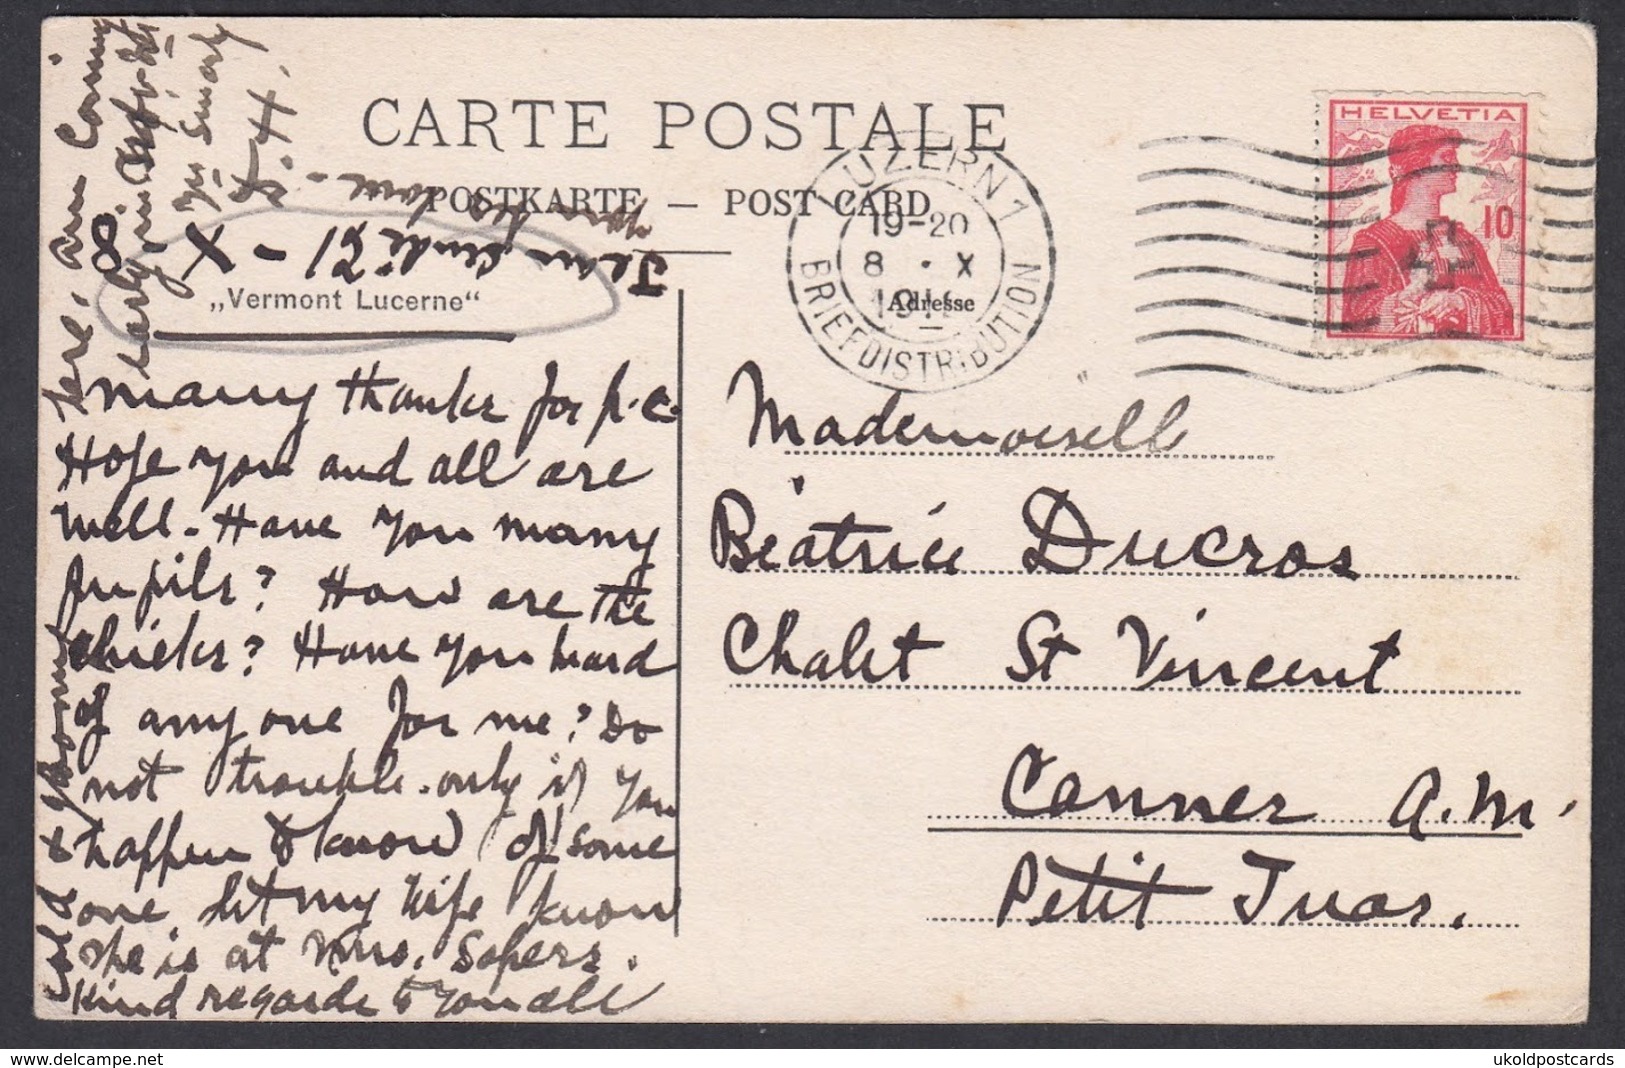 CARTE POSTALE
POSTKARTE — POST CARD
Adresse
„Vermont Lucerne“
LUZERN 1
19-20
8 · X
BRIEFDISTRIBUTION
HELVETIA
10
many thanks for p.c.
Hope you and all are
well - Have you many
pupils? How are the
chicks? Have you heard
of any one for me? Do
not trouble - only if you
happen to know of some
one let my wife know
she is at Mrs. Sopers.
Kind regards to you all
here, am coming
early in
Yrs
Mademoiselle
Béatrice Ducros
Chalet St Vincent
Cannes A.M.
Petit Juas.
ukoldpostcards